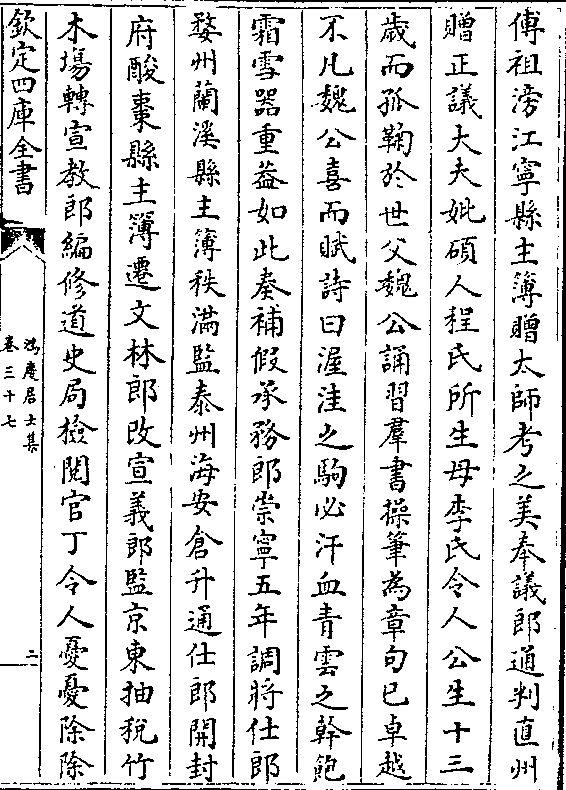 傅祖滂江寧縣主簿贈太師考之美奉議郎通判直州
贈正議大夫妣碩人程氏所生母李氏令人公生十三
歲而孤鞠於世父魏公誦習羣書操筆為章句已卓越
不凡魏公喜而賦詩曰渥洼之駒必汗血青雲之幹飽
霜雪器重葢如此奏補假承務郎崇寧五年調將仕郎
婺州蘭溪縣主簿秩滿監泰州海安倉升通仕郎開封
府酸棗縣主簿遷文林郎改宣義郎監京東抽稅竹
木塲轉宣教郎編修道史局檢閱官丁令人憂憂除除
欽定四庫全書
鴻慶居士集
卷三十七
二